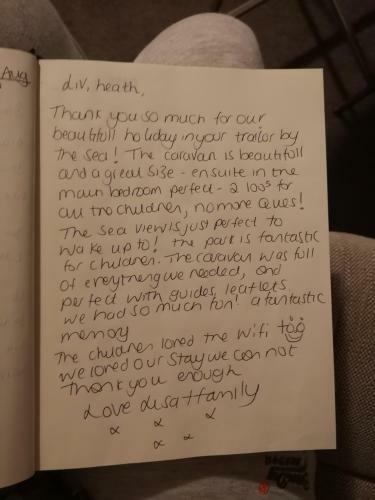 Aug
Liv, heath,
Thank you so much for our
beautifull holiday in your trailor by
the sea! The caravan is beautifull
and a great size - ensuite in the
main bedroom perfect - 2 loos for
all the children, no more ques!
The sea view is just perfect to
wake up to! the park is fantastic
for children. The caravan was full
of ereything we needed, and
perfect with guides, leaflets
we had so much fun! a fantastic
memory
The children loved the wifi too
we loved our stay we can not
thank you enough
Love Lisa + family